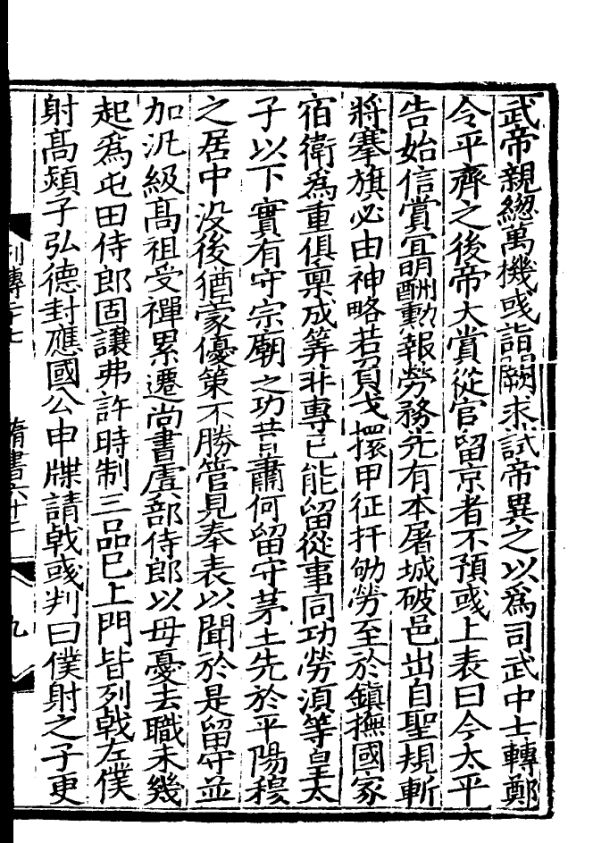 武帝親緫萬機彧詣闕求試帝異之以爲司武中士轉鄭
令平齊之後帝大賞從官留京者不預彧上表曰今太平
告始信賞宜明酬勳報勞務先有本屠城破邑出自聖規斬
將搴旗必由神略若負戈擐甲征扞劬勞至於鎮撫國家
宿衛爲重俱稟成筭非專己能留從事同功勞湏等皇太
子以下實有守宗廟之功昔蕭何留守茅土先於平陽穆
之居中没後猶蒙優策不勝管見奉表以聞於是留守並
加汎級髙祖受禪累遷尚書虞部侍郎以母憂去職未幾
起爲屯田侍郎固讓弗許時制三品已上門皆列戟左僕
射髙熲子弘德封應國公申牒請戟彧判曰僕射之子更
列傳二十七
隋書六十二
九